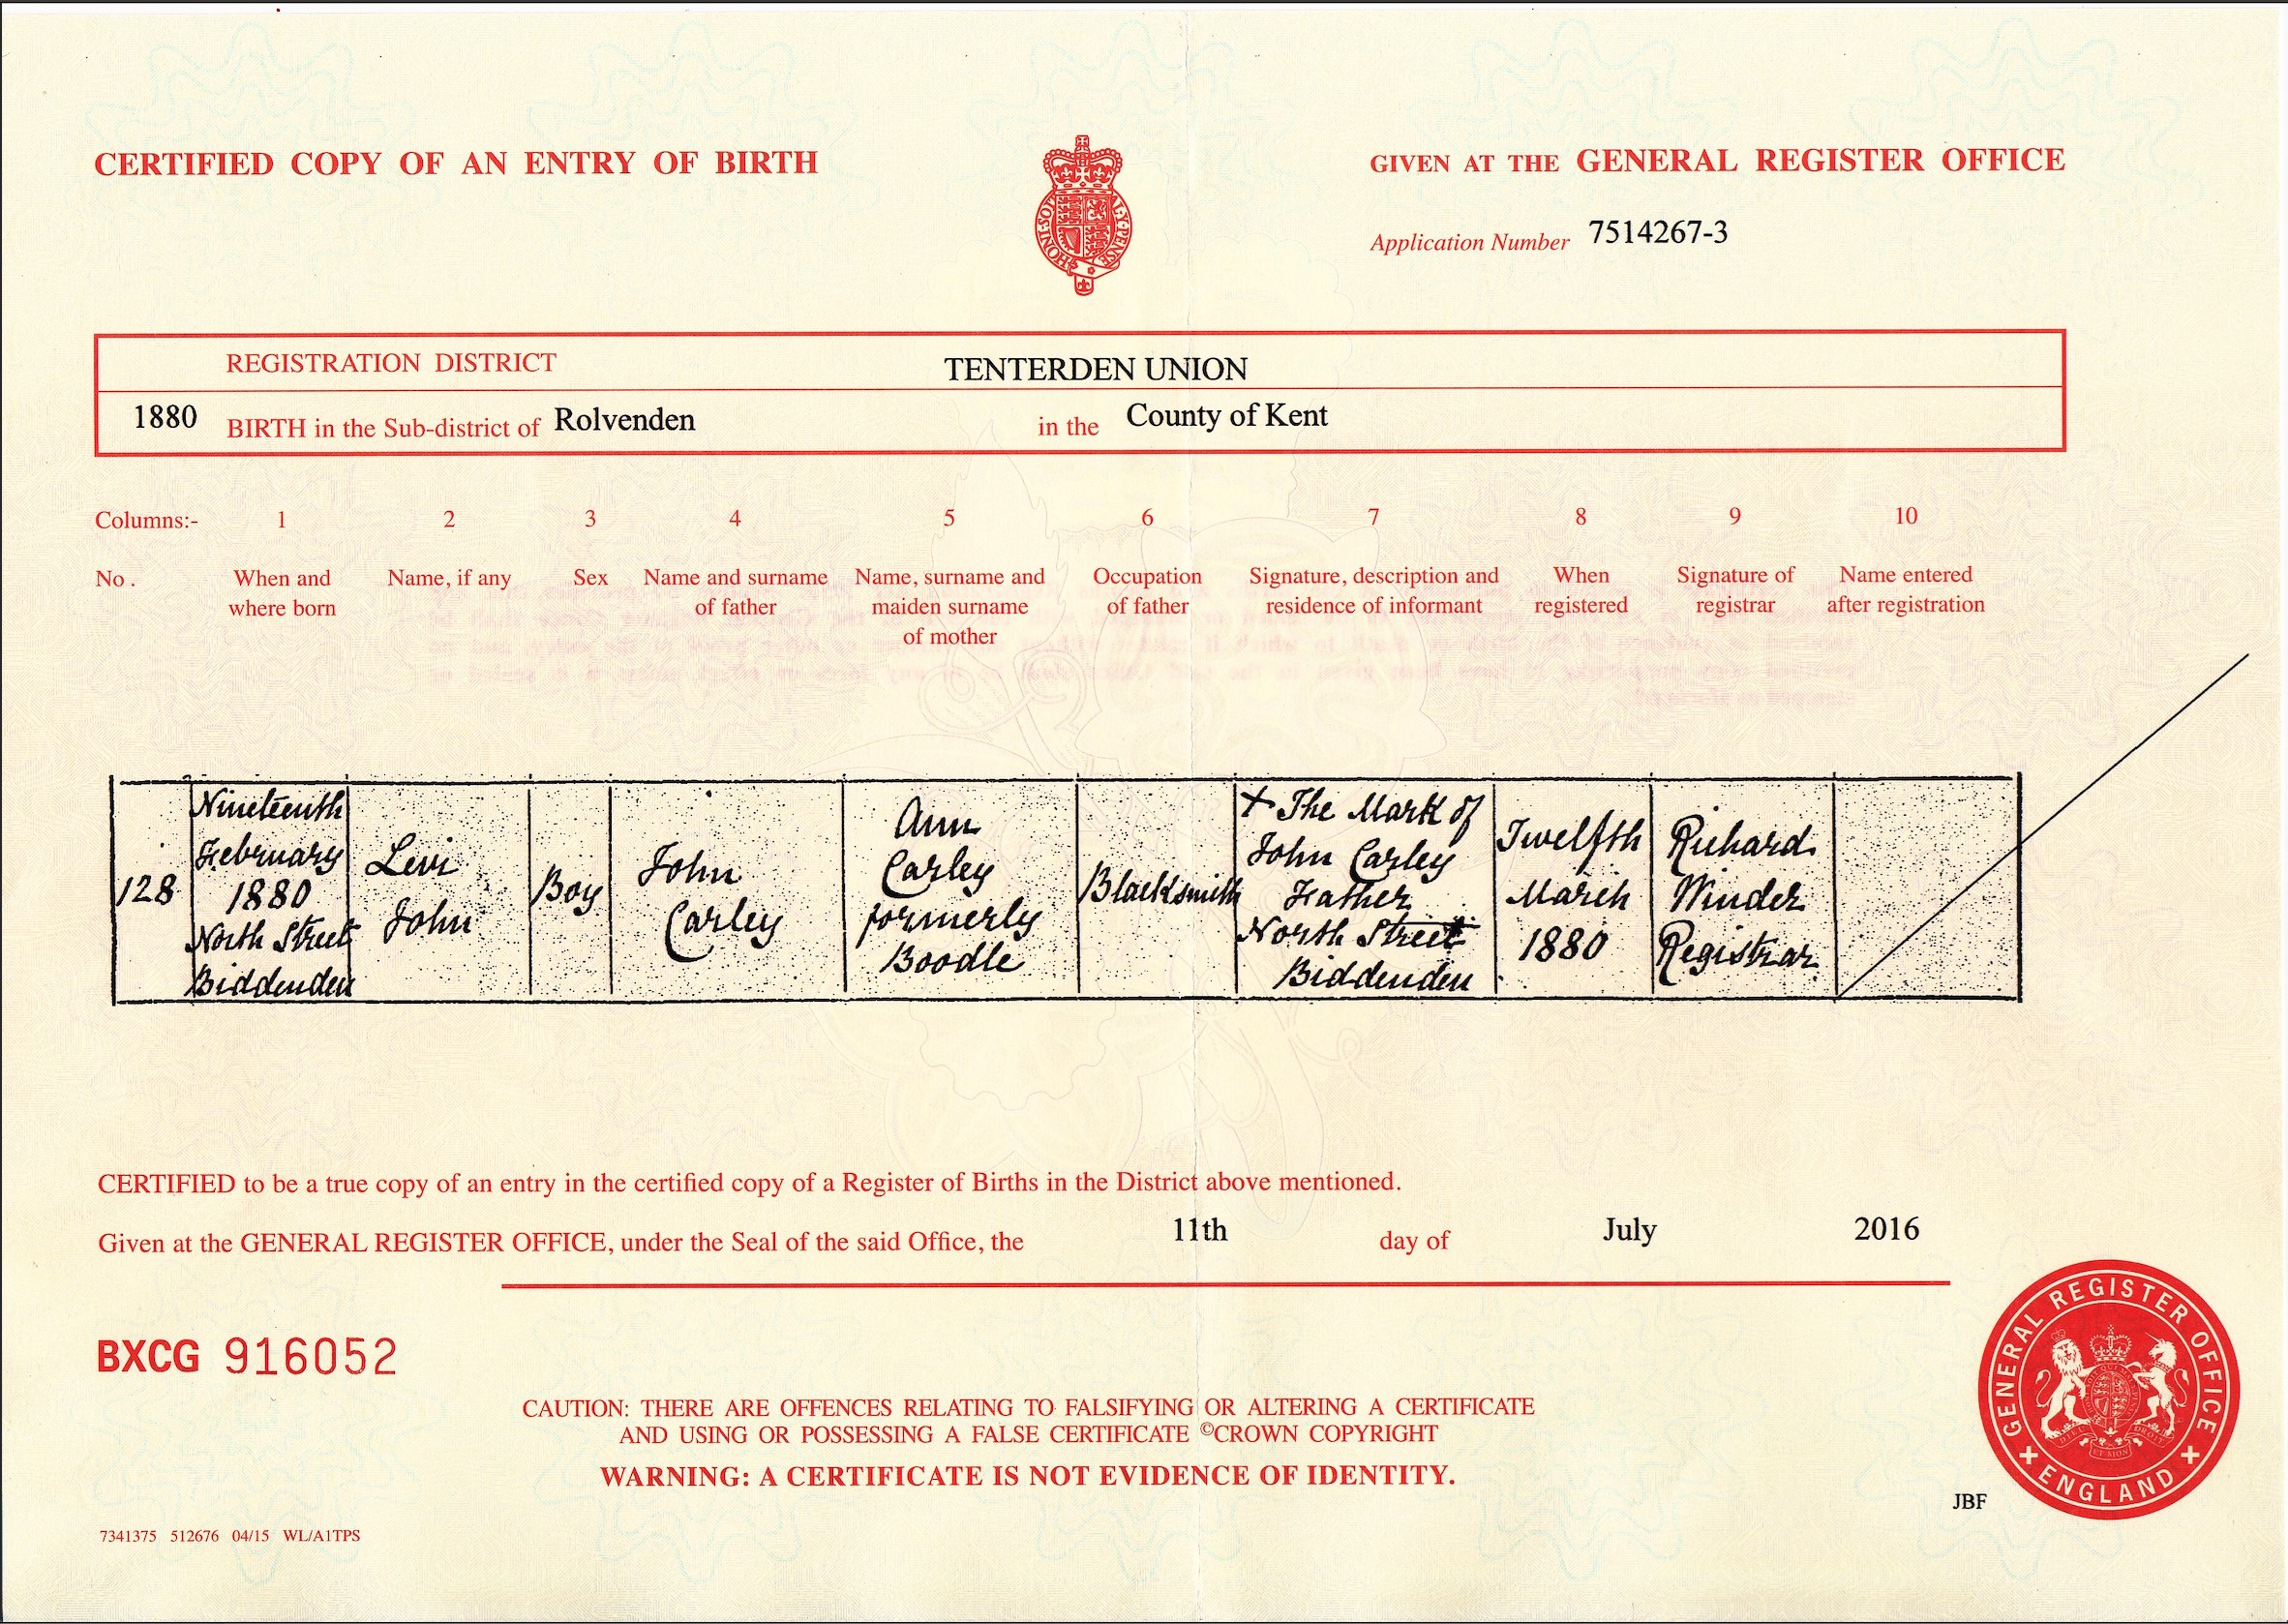 CERTIFIED COPY OF AN ENTRY OF BIRTH
GIVEN AT THE GENERAL REGISTER OFFICE
HONI·SOI AL·Y·PENSE
Application Number 7514267-3
REGISTRATION DISTRICT TENTERDEN UNION
1880 BIRTH in the Sub-district of Rolvenden in the County of Kent
Columns:- 1 2 3 4 5 6 7 8 9 10
No. When and where born Name, if any Sex Name and surname of father Name, surname and maiden surname of mother Occupation of father Signature, description and residence of informant When registered Signature of registrar Name entered after registration
128
Nineteenth
February
1880
North Street
Biddenden
Levi
John
Boy
John
Carley
Ann
Carley
formerly
Boodle
Blacksmith
X The Mark of
John Carley
Father
North Street
Biddenden
Twelfth
March
1880
Richard
Winder
Registrar
CERTIFIED to be a true copy of an entry in the certified copy of a Register of Births in the District above mentioned.
Given at the GENERAL REGISTER OFFICE, under the Seal of the said Office, the 11th day of July 2016
BXCG 916052
CAUTION: THERE ARE OFFENCES RELATING TO FALSIFYING OR ALTERING A CERTIFICATE
AND USING OR POSSESSING A FALSE CERTIFICATE ©CROWN COPYRIGHT
WARNING: A CERTIFICATE IS NOT EVIDENCE OF IDENTITY.
GENERAL REGISTER OFFICE
ENGLAND
JBF
7341375 512676 04/15 WL/A1TPS